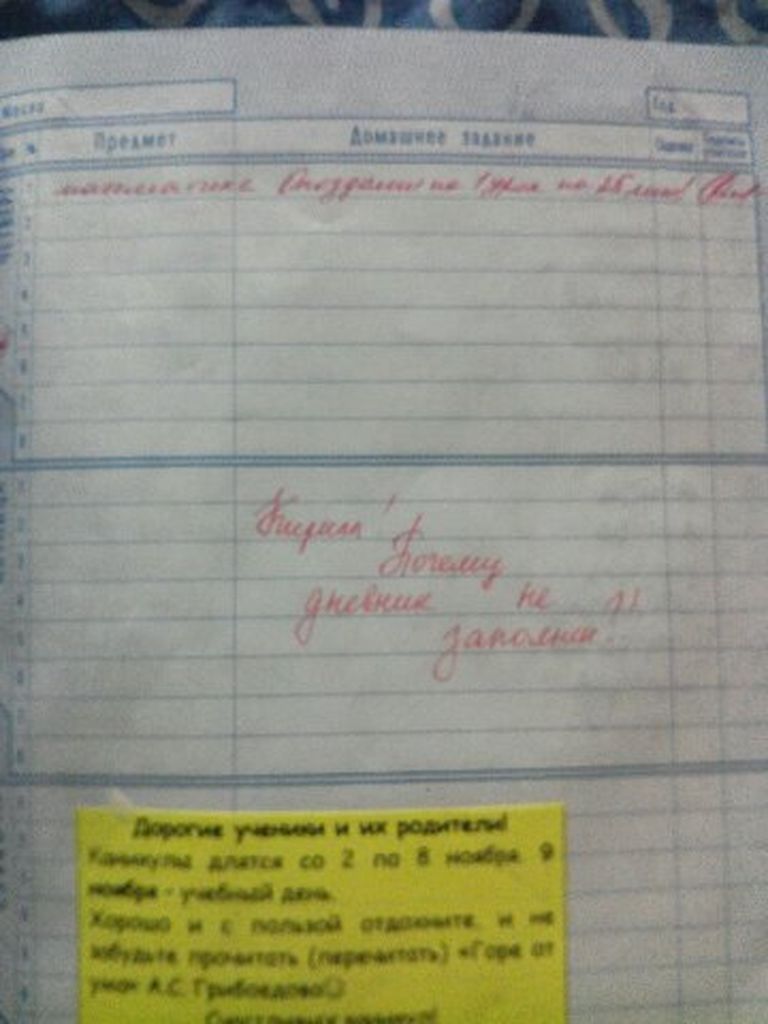 Месяц Год
Предмет Домашнее задание Оценка
математика Опоздание на 1 урок на 25 мин!
Кирилл!
Почему
дневник не
заполнен!!
Дорогие ученики и их родители!
Каникулы длятся со 2 по 8 ноября. 9
ноября - учебный день.
Хорошо и с пользой отдохните, и не
забудьте прочитать (перечитать) «Горе от
ума» А.С. Грибоедова☺
Счастливых каникул!